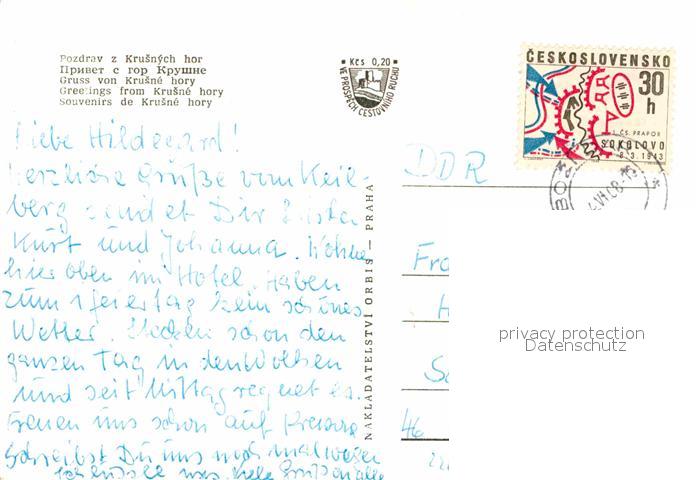 Pozdrav z Krušných hor
Привет с гор Крушне
Gruss von Krušné hory
Greetings from Krušné hory
Souvenirs de Krušné hory
Kčs 0,20
VE PROSPĚCH CESTOVNÍHO RUCHU
ČESKOSLOVENSKO
30
h
1. ČS. PRAPOR
SOKOLOVO
8.3.1943
Liebe Hildegard!
Herzliche Grüße vom Keil-
berg sendet Dir
Kurt und Johanna. Wohnen
hier oben im Hotel. Haben
zum 1 feiertag kein schönes
Wetter. Stecken schon den
ganzen Tag in den Wolken
und seit Mittag regnet es.
Freuen uns schon auf
Schreibst Du uns noch mal wegen
viele Grüße an alle
NAKLADATELSTVÍ ORBIS — PRAHA
DDR
Fra
H
46
privacy protection
Datenschutz